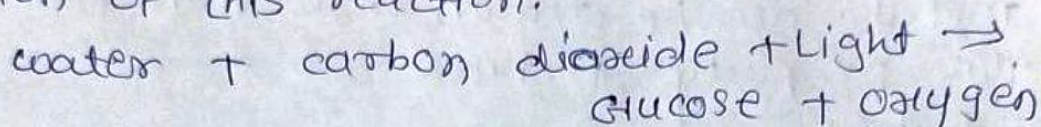 of this reaction.
water + carbon dioxide + Light →
Glucose + Oxygen